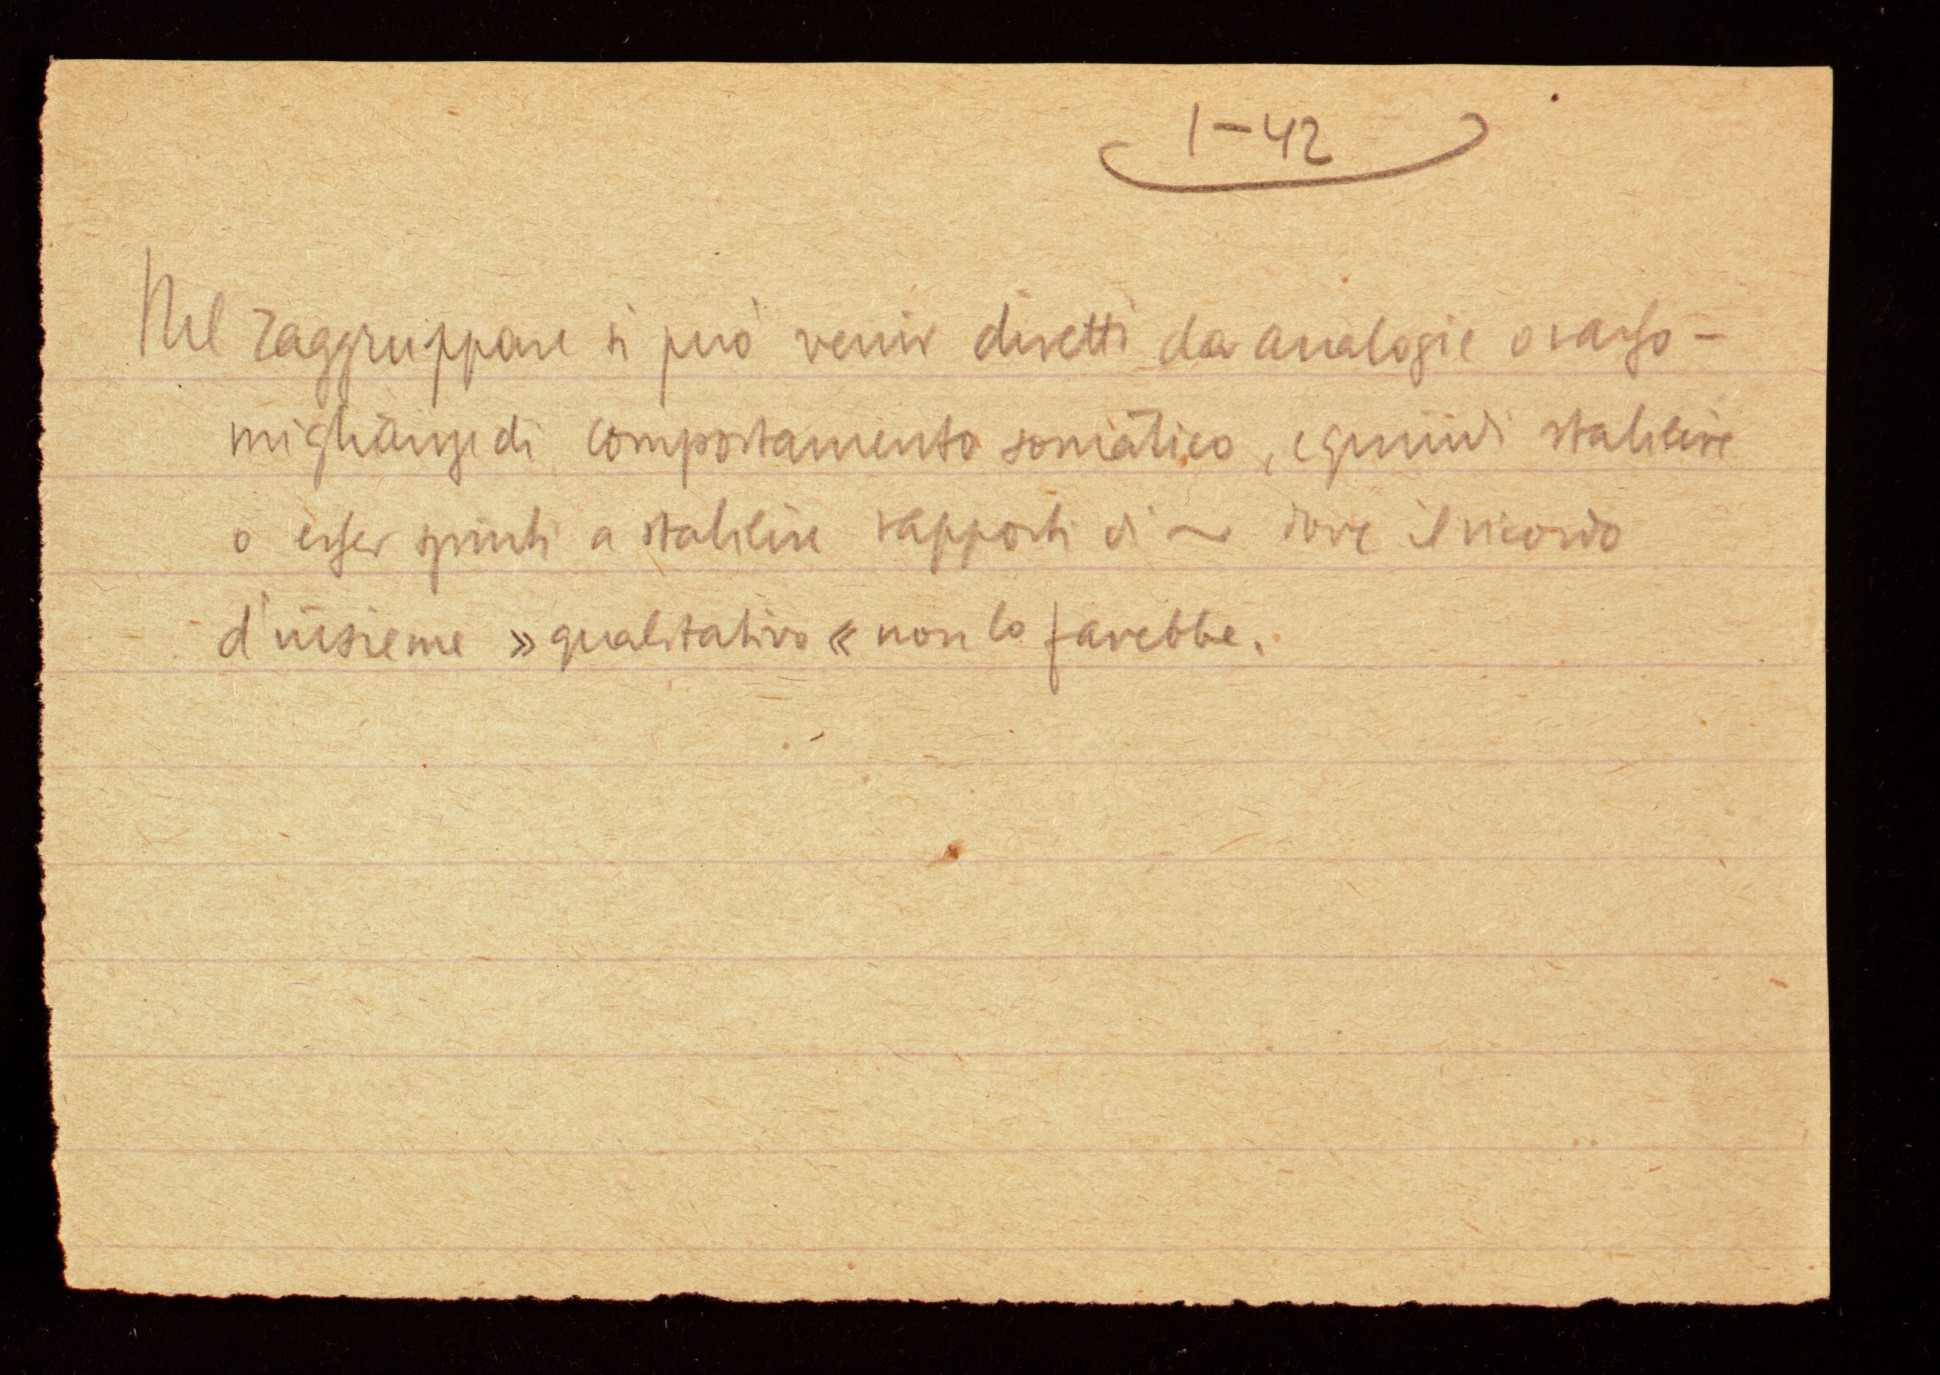 1-42
Nel raggruppare si può venir diretti da analogie o rasso-
miglianze di comportamento somatico, e quindi stabilire
o esser spinti a stabilire rapporti di ~ dove il ricordo
d'insieme »qualitativo« non lo farebbe.